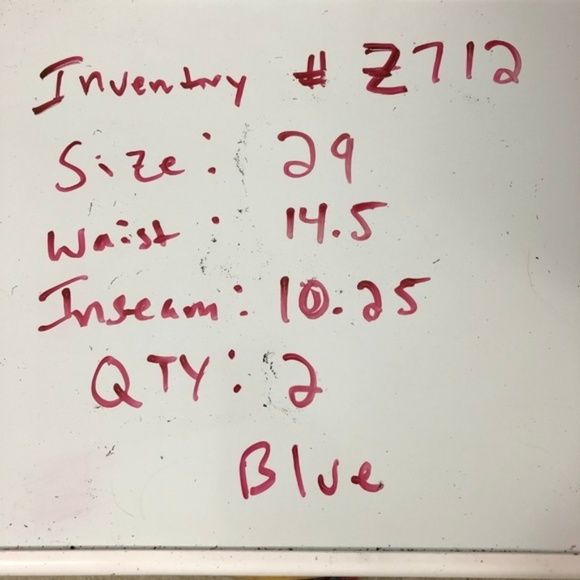 Inventory # Z712
Size: 29
Waist: 14.5
Inseam: 10.25
QTY: 2
Blue